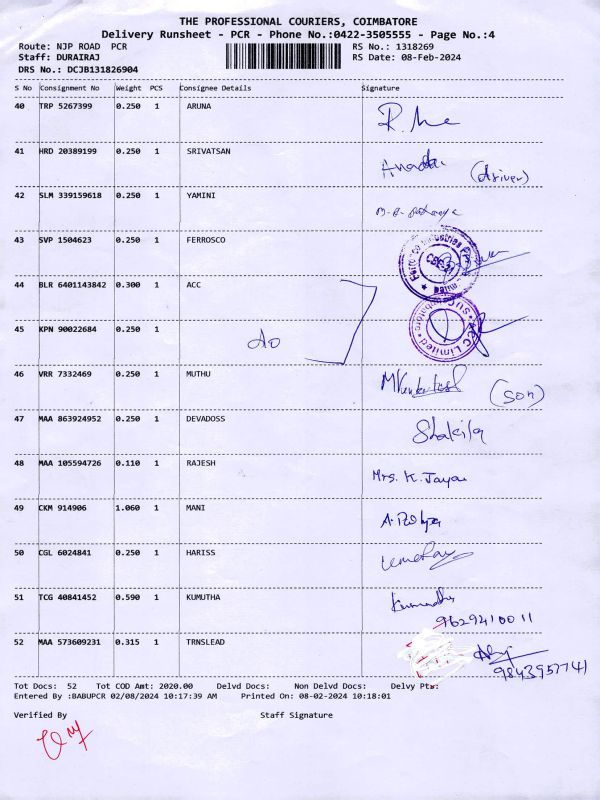 THE PROFESSIONAL COURIERS, COIMBATORE
Delivery Runsheet - PCR - Phone No.:0422-3505555 - Page No.:4
Route: NJP ROAD PCR RS No.: 1318269
Staff: DURAIRAJ RS Date: 08-Feb-2024
DRS No.: DCJB131826904
S No Consignment No Weight PCS Consignee Details Signature
40 TRP 5267399 0.250 1 ARUNA
41 HRD 20389199 0.250 1 SRIVATSAN (driver)
42 SLM 339159618 0.250 1 YAMINI
43 SVP 1504623 0.250 1 FERROSCO
44 BLR 6401143842 0.300 1 ACC
45 KPN 90022684 0.250 1 do
ACC Limited
46 VRR 7332469 0.250 1 MUTHU (son)
47 MAA 863924952 0.250 1 DEVADOSS Shakila
48 MAA 105594726 0.110 1 RAJESH Mrs. K. Jaya
49 CKM 914906 1.060 1 MANI
50 CGL 6024841 0.250 1 HARISS
51 TCG 40841452 0.590 1 KUMUTHA
9629410011
52 MAA 573609231 0.315 1 TRNSLEAD
9843957741
Tot Docs: 52 Tot COD Amt: 2020.00 Delvd Docs: Non Delvd Docs: Delvy Pts:
Entered By :BABUPCR 02/08/2024 10:17:39 AM Printed On: 08-02-2024 10:18:01
Verified By Staff Signature